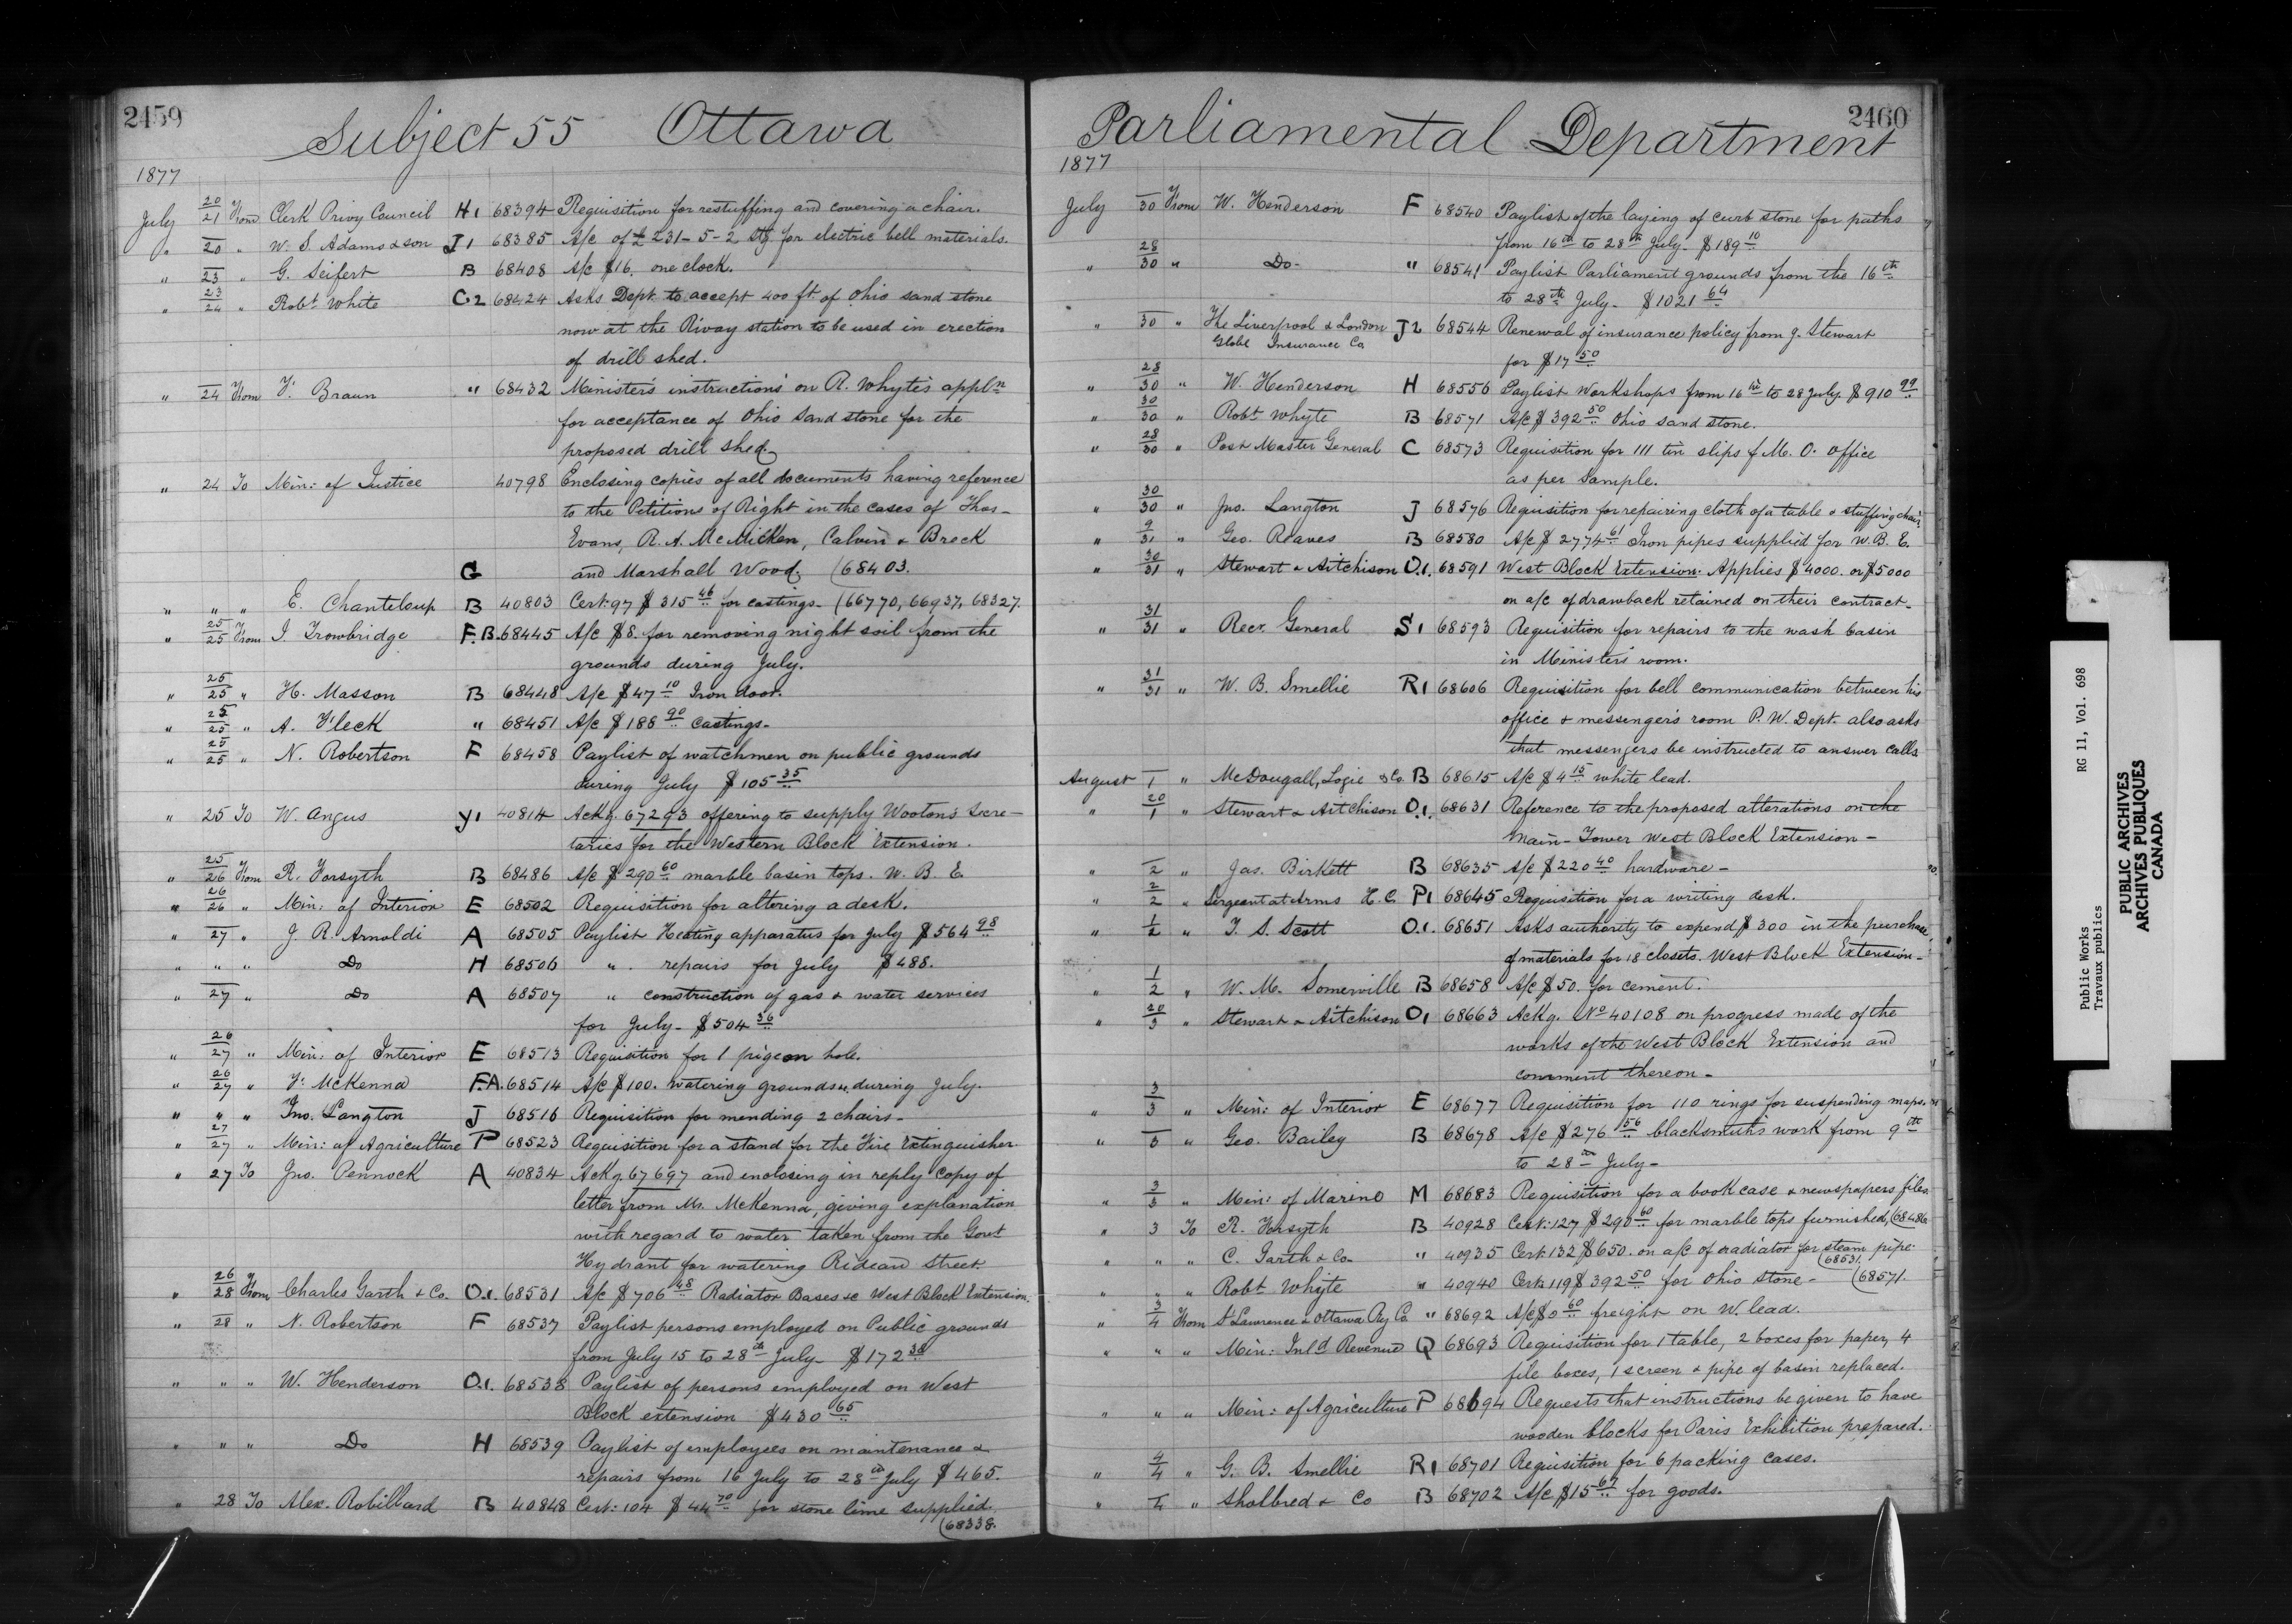 2459
Subject 55 Ottawa
1877
July 20/21 From Clerk Privy Council H1 68394 Requisition for restuffing and covering a chair.
" 20 " W. S. Adams & son J1 68385 A/c of £231-5-2 Stg for electric bell materials.
" 23 " G. Seifert B 68408 A/c $16. one clock.
" 23/24 " Robt White C2 68424 Asks Dept. to accept 400 ft. of Ohio sand stone
now at the Rivay station to be used in erection
of drill shed.
" 24 From F. Braun " 68432 Minister's instructions on R. Whyte's appln
for acceptance of Ohio Sand stone for the
proposed drill shed.
" 24 To Min: of Justice 40798 Enclosing copies of all documents having reference
to the Petitions of Right in the cases of Thos-
Evans, R. A. McMicken, Calvin & Breck
G and Marshall Wood. (68403.
" " " E. Chanteloup B 40803 Cert: 97 $315 46 for castings- (66770, 66937, 68327.
" 25/25 From I. Trowbridge F.B. 68445 A/c $8. for removing night soil from the
grounds during July.
" 25/25 " H. Masson B 68448 A/c $47 10 Iron door.
" 25/25 " A. Fleck " 68451 A/c $188 90 Castings-
" 25/25 " N. Robertson F 68458 Paylist of watchmen on public grounds
during July $105 35
" 25 To W. Angus Y1 40814 Ackg. 67293 offering to supply Wooton's Secre-
taries for the Western Block Extension.
" 25/26 From R. Forsyth B 68486 A/c $290 60 marble basin tops. W. B. E.
" 26/26 " Min: of Interior E 68502 Requisition for altering a desk.
" 27 " J. R. Arnoldi A 68505 Paylist Heating apparatus for July $564 98
" " " Do H 68506 " repairs for July $488.
" 27 " Do A 68507 " construction of gas & water services
for July- $504 36
" 26/27 " Min: of Interior E 68513 Requisition for 1 pigeon hole.
" 26/27 " F. McKenna F.A. 68514 A/c $100. watering grounds &c during July.
" " " Jno. Langton J 68516 Requisition for mending 2 chairs-
" 27/27 " Min: of Agriculture P 68523 Requisition for a stand for the Fire Extinguisher
" 27 To Jno. Pennock A 40834 Ackg. 67697 and enclosing in reply copy of
letter from Mr. McKenna, giving explanation
with regard to water taken from the Govt
Hydrant for watering Rideau Street
" 26/28 From Charles Garth & Co. O.1. 68531 A/c $706 48 Radiator Bases &c West Block Extension.
" 28 " N. Robertson F 68537 Paylist persons employed on Public grounds
from July 15 to 28th July- $172 38
" " " W. Henderson O.1. 68538 Paylist of persons employed on West
Block extension $430 65
" " " Do H 68539 Paylist of employees on maintenance &
repairs from 16 July to 28th July $465.
" 28 To Alex. Robillard B 40848 Cert: 104 $44 70 for stone lime supplied.
(68338.
2460
Parliamental Department
1877
July 30 From W. Henderson F 68540 Paylist of the laying of curb stone for paths
from 16th to 28th July- $189 10
" 28/30 " Do- " 68541 Paylist Parliament grounds from the 16th
to 28th July- $1021 64
" 30 " The Liverpool & London J2 68544 Renewal of insurance policy from J. Stewart
Globe Insurance Co
for $17 50
" 28/30 " W. Henderson H 68556 Paylist Workshops from 16th to 28 July $910 99
" 30/30 " Robt Whyte B 68571 A/c $392 50 Ohio sand stone.
" 28/30 " Post Master General C 68573 Requisition for 111 tin slips f M. O. office
as per Sample.
" 30/30 " Jno. Langton J 68576 Requisition for repairing cloth of a table & stuffing chair.
" 9/31 " Geo. Reaves B 68580 A/c $2774 61 Iron pipes supplied for W. B. E.
" 30/31 " Stewart & Aitchison O.1. 68591 West Block Extension. Applies $4000. or $5000
on a/c of drawback retained on their contract-
" 31/31 " Recr. General S1 68593 Requisition for repairs to the wash basin
in Ministers' room.
" 31/31 " W. B. Smellie R1 68606 Requisition for bell communication between his
office & messenger's room P. W. Dept. also asks
that messengers be instructed to answer calls
August 1 " McDougall, Logie & Co. B 68615 A/c $4 15 white lead.
" 20/1 " Stewart & Aitchison O.1. 68631 Reference to the proposed alterations on the
Main- Tower West Block Extension-
" 2 " Jas. Birkett B 68635 A/c $220 40 hardware-
" 2/2 " Sergeant at Arms H. C. P1 68645 Requisition for a writing desk.
" 1/2 " T. S. Scott O.1. 68651 Asks authority to expend $300 in the purchase
of materials for 18 closets. West Block Extension-
" 1/2 " W. M. Somerville B 68658 A/c $50. for cement.
" 20/3 " Stewart & Aitchison O1 68663 Ackg. No 40108 on progress made of the
works of the West Block Extension and
comment thereon-
" 3/3 " Min: of Interior E 68677 Requisition for 110 rings for suspending maps.
" 3 " Geo. Bailey B 68678 A/c $276 56 blacksmith's work from 9th
to 28th July-
" 3/3 " Min: of Marine M 68683 Requisition for a book case & newspapers files.
" 3 To R. Forsyth B 40928 Cert: 127 $290 60 for marble tops furnished, (68486.
" " " C. Garth & Co- " 40935 Cert: 132 $650. on a/c of radiator for steam pipe.
(68531.
" " " Robt Whyte " 40940 Cert: 119 $392 50 for Ohio stone- (68571.
" 3/4 From St Lawrence & Ottawa Ry Co. " 68692 A/c $0 60 freight on W. lead.
" " " Min: Inld Revenue Q 68693 Requisition for 1 table, 2 boxes for paper, 4
file boxes, 1 screen & pipe of basin replaced.
" " " Min: of Agriculture P 68694 Requests that instructions be given to have
wooden blocks for Paris Exhibition prepared.
" 4/4 " G. B. Smellie R1 68701 Requisition for 6 packing cases.
" 4 " Sholbred & Co B 68702 A/c $15 67 for goods.
Public Works RG 11, Vol. 698
Travaux publics
PUBLIC ARCHIVES
ARCHIVES PUBLIQUES
CANADA